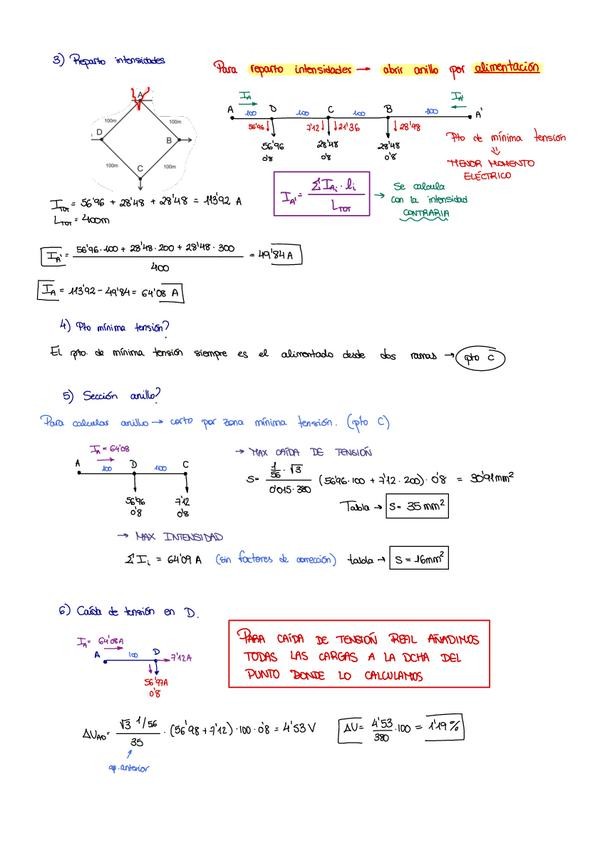 3) Reparto intensidades
Para reparto intensidades → abrir anillo por alimentación
A
100m
100m
D
B
100m
100m
C
I_A
I_A'
A
100
D
100
C
100
B
100
A'
56'96
7'12
21'36
28'48
56'96
0'8
28'48
0'8
28'48
0'8
Pto de mínima tensión
⇓
MENOR MOMENTO
ELÉCTRICO
I_A' = Σ I_Ai · li / L_TOT
→ Se calcula
con la intensidad
CONTRARIA
I_TOT = 56'96 + 28'48 + 28'48 = 113'92 A
L_TOT = 400m
I_A' = 56'96·100 + 28'48·200 + 28'48·300 / 400 = 49'84 A
I_A = 113'92 - 49'84 = 64'08 A
4) Pto mínima tensión?
El pto de mínima tensión siempre es el alimentado desde dos ramas → pto C
5) Sección anillo?
Para calcular anillo → corto por zona mínima tensión. (pto C)
I_A = 64'08
A
100
D
100
C
56'96
0'8
7'12
0'8
→ MAX CAÍDA DE TENSIÓN
S = 1/56 · √3 / 0'015·380 (56'96·100 + 7'12·200)·0'8 = 30'91 mm²
Tabla → S = 35 mm²
→ MAX INTENSIDAD
Σ I_i = 64'09 A (sin factores de corrección) tabla → S = 16mm²
6) Caída de tensión en D.
I_A = 64'08A
A
100
D
7'12A
56'97A
0'8
PARA CAÍDA DE TENSIÓN REAL AÑADIMOS
TODAS LAS CARGAS A LA DCHA DEL
PUNTO DONDE LO CALCULAMOS
ΔU_AD = √3 1/56 / 35 · (56'98 + 7'12)·100·0'8 = 4'53 V
ΔU = 4'53 / 380 · 100 = 1'19 %
ap. anterior